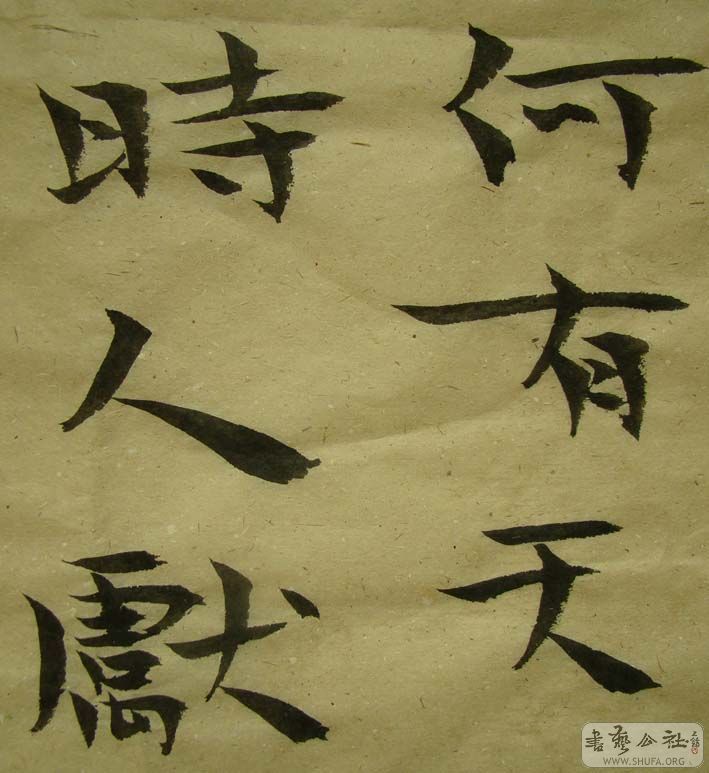 何有天
時人獻
書藝公社
WWW.SHUFA.ORG